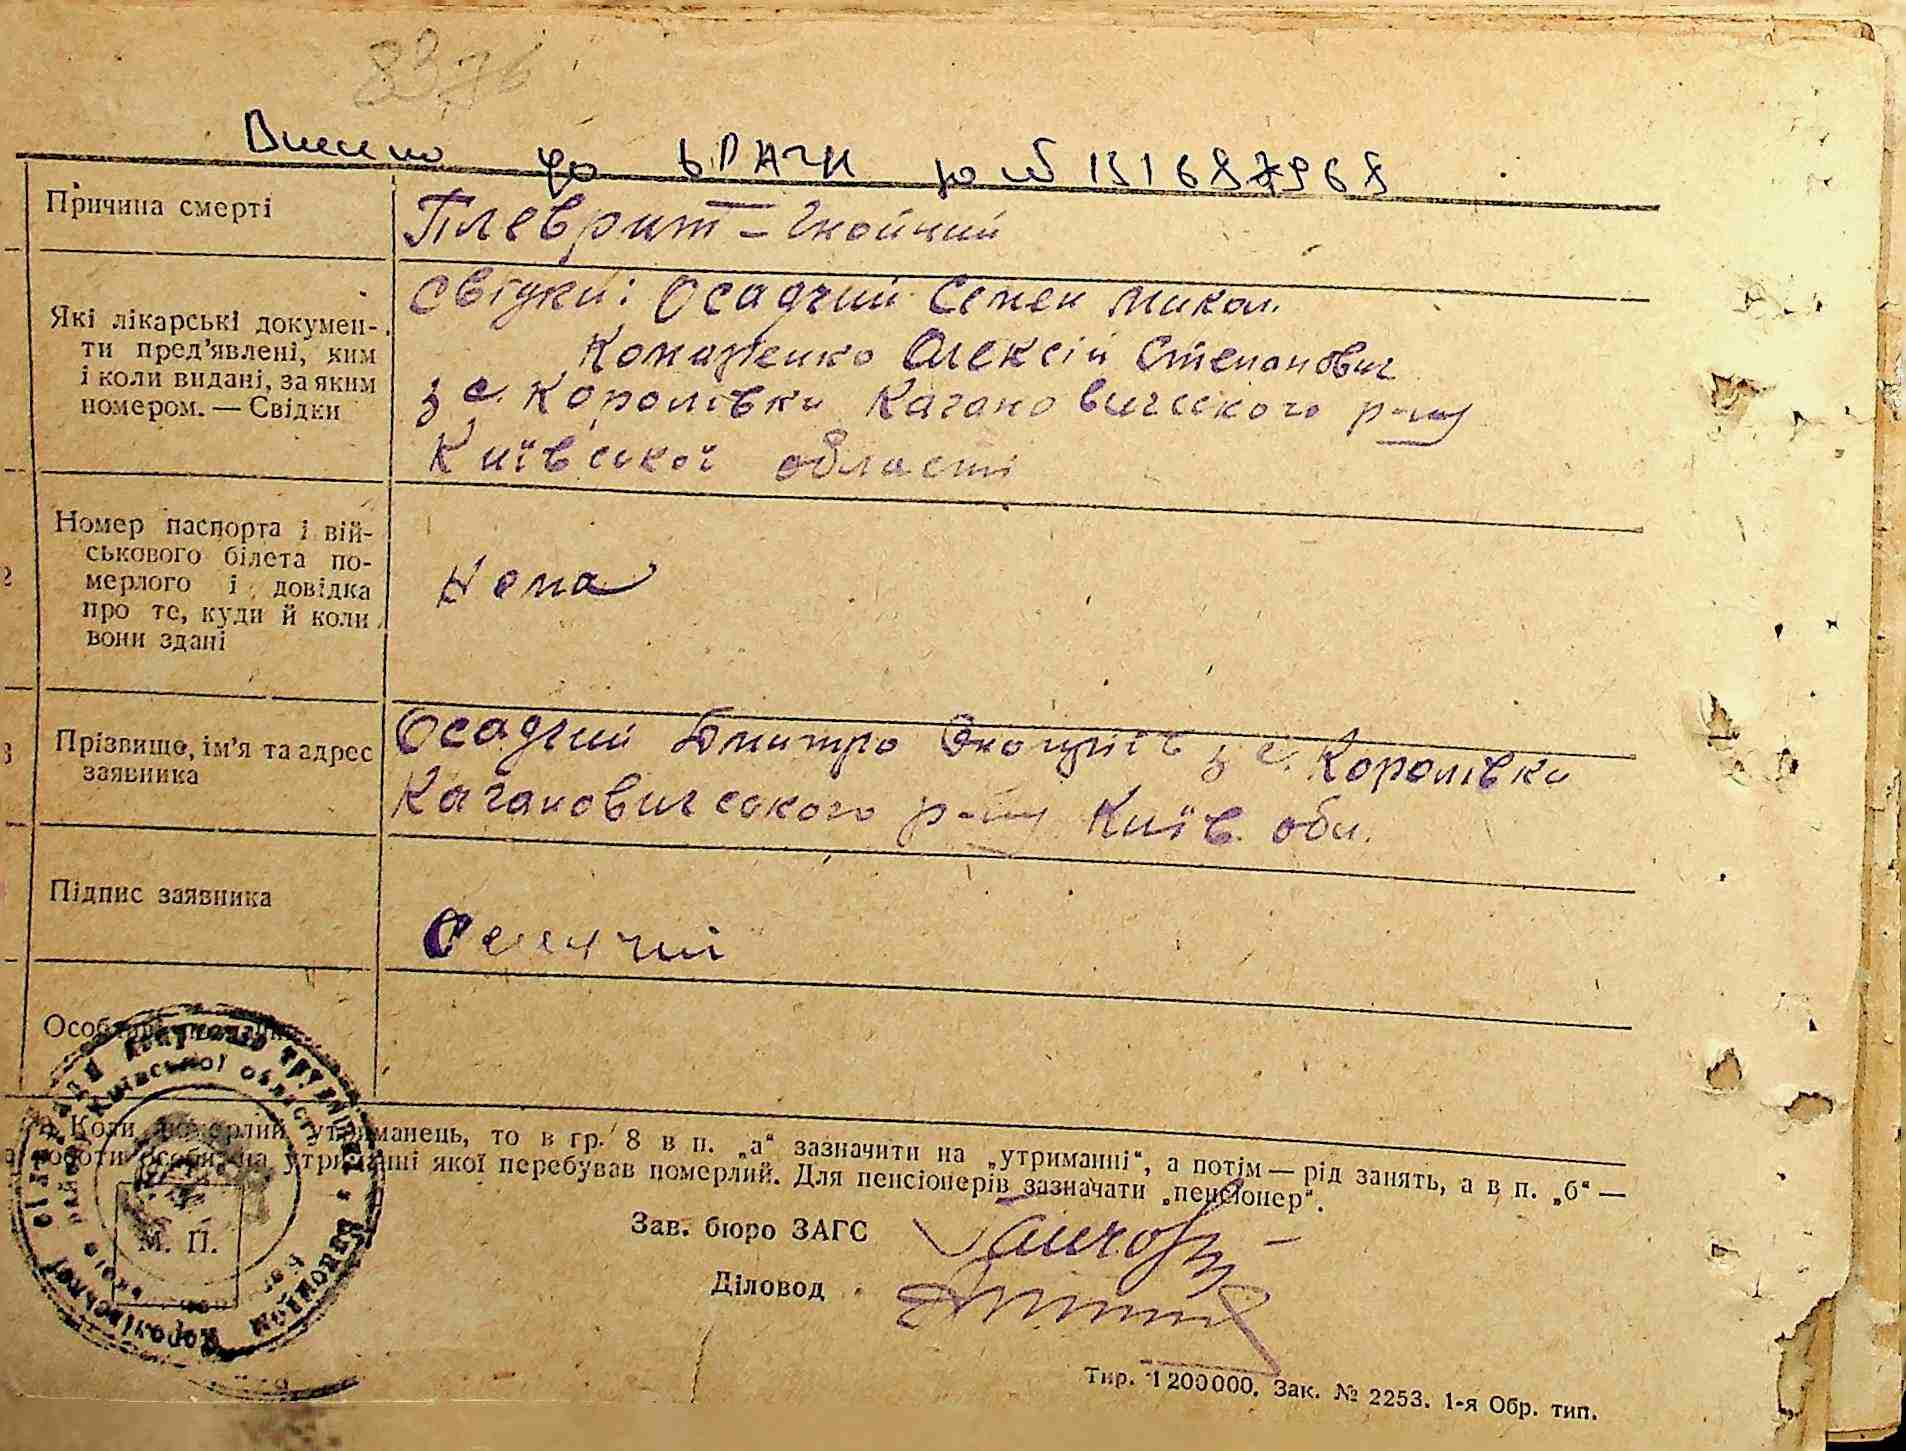 8376
Внесено до ДРАЦГ
Причина смерті
Плеврит – Гнойний
Які лікарські докумен-
ти пред'явлені, ким
і коли видані, за яким
номером. — Свідки
Свідки: Осадчий Семен Микол.
Олексій Степанович
з с. Королівки Кагановичського р-ну
Київської області
Номер паспорта і вій-
ськового білета по-
мерлого і довідка
про те, куди й коли
вони здані
Нема
Прізвище, ім'я та адрес
заявника
Осадчий Дмитро з с. Королівки
Кагановичського р-ну Київ. обл.
Підпис заявника
Осадчий
Коли померлий утриманець, то в гр. 8 в п. „а“ зазначити на „утриманні“, а потім — рід занять, а в п. „б“ —
роботи особи, на утриманні якої перебував померлий. Для пенсіонерів зазначати „пенсіонер“.
М. П.
Зав. бюро ЗАГС
Діловод
Тир. 1 200 000. Зак. № 2253. 1-я Обр. тип.